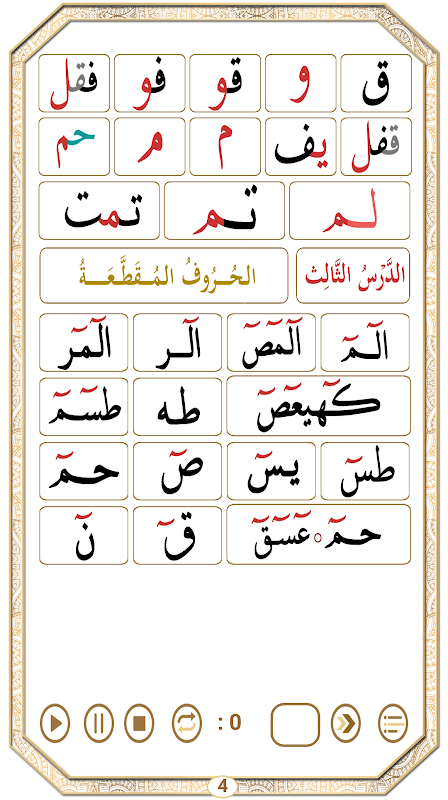 ق و قو فو فقل
قفل يف م م حم
لم تم تمت
الدَّرْسُ الثَّالِث الحُرُوفُ المُقَطَّعَةُ
الٓمٓ الٓمٓصٓ الٓر الٓمٓر
كٓهيعٓصٓ طه طسٓمٓ
طسٓ يسٓ صٓ حمٓ
حمٓ ○ عٓسٓقٓ قٓ نٓ
: 0
4